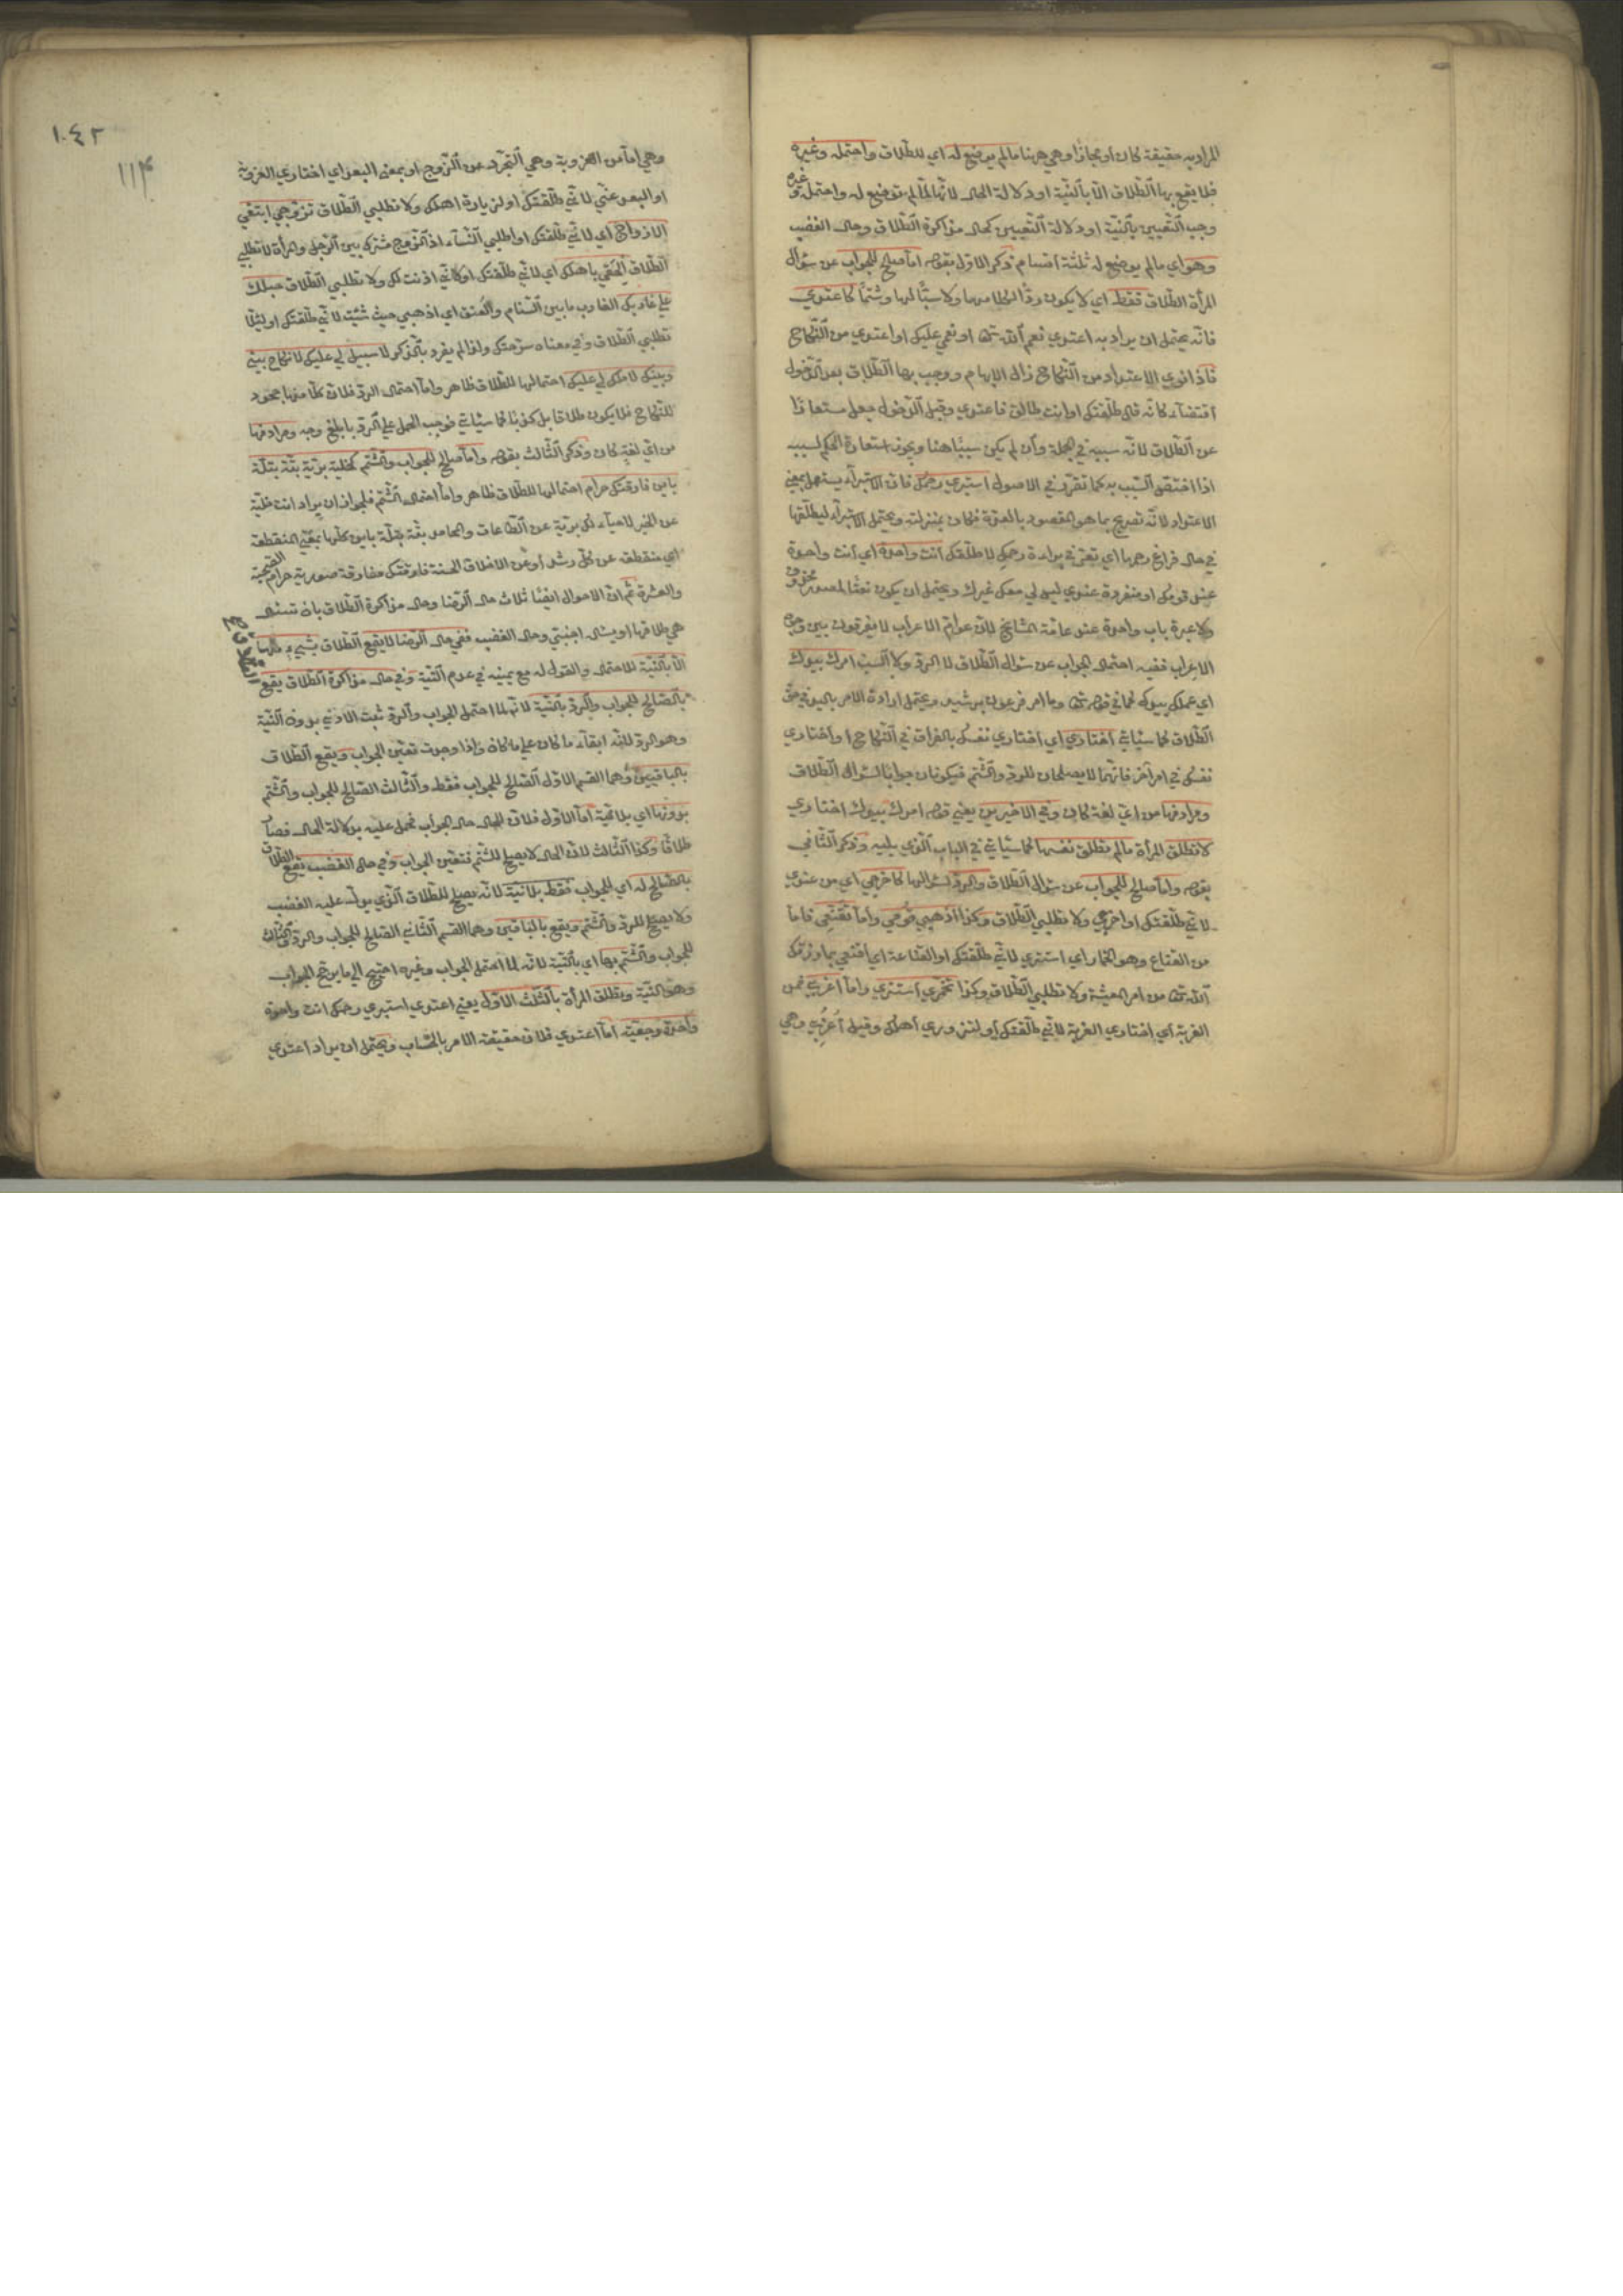 المراد به حقيقة كان او مجازا وهي ههنا ما لم يوضع له اي للطلاق واحتمله وغيره
فلا يقع بها الطلاق الا بالنية او دلالة الحال لانها لما لم توضع له واحتملته وغيره
وجب التعيين بالنية او دلالة التعيين كحال مذاكرة الطلاق وحال الغضب
وهو اي ما لم يوضع له ثلثة اقسام ذكر الاول بقوله اما صالح للجواب عن سؤال
المرأة الطلاق فقط اي لا يكون ردا لكلامها ولا سبا لها وشتما كاعتدي
فانه يحتمل ان يراد به اعتدي نعم الله تعا او نعمي عليك او اعتدي من النكاح
فاذا نوي الاعتداد من النكاح زال الابهام ووجب بها الطلاق بعد الدخول
اقتضاء كانه قال طلقتك او انت طالق فاعتدي وقبل الدخول جعل مستعارا
عن الطلاق لانه سببه في الجملة وان لم يكن سببا هنا ويجوز استعارة الحكم لسببه
اذا اختص السبب به كما تقرر في الاصول استبري رحمك فان الاستبراء يستعمل بمعني
الاعتداد لانه تصريح بما هو المقصود بالعدة فكان بمنزلته ويحتمل الاستبراء ليطلقها
في حال فراغ رحمها اي تعرفي براءة رحمك لاطلقك انت واحدة اي انت واحدة
عند قومك او منفردة عندي ليس لي معك غيرك ويحتمل ان يكون نعتا لمصدر محذوف
ولا عبرة باب واحدة عند عامة المشايخ لان عوام الاعراب لا يفرقون بين وجوه
الاعراب ففيه احتمال الجواب عن سؤال الطلاق لا الرد ولا السب امرك بيدك
اي عملك بيدك كما في قوله تعا وما امر فرعون برشيد ويحتمل ارادة الامر باليد في حق
الطلاق كما سيأتي اختاري اي اختاري نفسك بالفراق في النكاح او اختاري
نفسك في امر آخر فانهما لا يصلحان للرد والشتم فيكونان جوابا لسؤال الطلاق
ومرادفها من اي لغة كان وفي الاخيرين يعني قوله امرك بيدك اختاري
لا تطلق المرأة ما لم تطلق نفسها كما سيأتي في الباب الذي يليه وذكر الثاني
بقوله واما صالح للجواب عن سؤال الطلاق والرد لسؤالها كاخرجي اي من عندي
لاني طلقتك او اخرجي ولا تطلبي الطلاق وكذا اذهبي قومي واما تقنعي فاما
من القناع وهو الخمار اي استتري لاني طلقتك او القناعة اي اقنعي بما رزقك
الله تعا من امر المعيشة ولا تطلبي الطلاق وكذا تخمري استتري واما اغربي فمن
الغربة اي اختاري الغربة لاني طلقتك او لتزوري اهلك وقيل اعزبي وهي
١٠٤٢
١١٣
وهي اما من العزوبة وهي التجرد عن الزوج او بمعنى البعد اي اختاري العزوبة
او البعد عني لاني طلقتك او لزيارة اهلك ولا تطلبي الطلاق تزوجي ابتغي
الازواج اي لاني طلقتك او اطلبي النساء اذ الزوج مشترك بين الرجل والمرأة لا تطلبي
الطلاق الحقي باهلك اي لاني طلقتك او كاني اذنت لك ولا تطلبي الطلاق حبلك
علي غاربك الغارب ما بين السنام والعنق اي اذهبي حيث شئت لاني طلقتك او لئلا
تطلبي الطلاق وفي معناه سرحتك ولذا لم يفرد بالذكر لا سبيل لي عليك لا نكاح بيني
وبينك لا ملك لي عليك احتمالها للطلاق ظاهر واما احتمال الرد فلان كلا منها جحود
للنكاح فلا يكون طلاقا بل كذبا كما سيأتي فوجب الحمل علي الرد بابلغ وجه ومرادفها
من اي لغة كان وذكر الثالث بقوله واما صالح للجواب والشتم كخلية برية بتة بتلة
باين فارقتك حرام احتمالها للطلاق ظاهر واما احتمال الشتم فلجواز ان يراد انت خلية
عن الخير لا حياء لك برية عن الطاعات والمحامد بتة بتلة باين كلها بمعني المنقطعة
اي منقطعة عن كل رشد او عن الاخلاق الحسنة فارقتك مفارقة صورية حرام الصحبة
والعشرة ثم ان الاحوال ايضا ثلاث حال الرضا وحال مذاكرة الطلاق بان تسئل
هي طلاقها او يسال اجنبي وحال الغضب ففي حال الرضا لا يقع الطلاق بشيء منها
الا بالنية للاحتمال والقول له مع يمينه في عدم النية وفي حال مذاكرة الطلاق يقع
بالصالح للجواب والرد بالنية لانه لما احتمل الجواب والرد ثبت الادني بدون النية
وهو الرد لانه ابقاء ما كان علي ما كان واذا وجدت تعين الجواب ويقع الطلاق
بالباقيين وهما القسم الاول الصالح للجواب فقط والثالث الصالح للجواب والشتم
بدونها اي بلا نية اما الاول فلان الحال حال الجواب فحمل عليه بدلالة الحال فصار
طلاقا وكذا الثالث لان الحال لا يصلح للشتم فتعين الجواب وفي حال الغضب يقع الطلاق
بالصالح له اي للجواب فقط بلا نية لانه يصلح للطلاق الذي يدل عليه الغضب
ولا يصلح للرد والشتم ويقع بالباقيين وهما القسم الثاني الصالح للجواب والرد والثالث
للجواب والشتم بها اي بالنية لانه لما احتمل الجواب وغيره احتيج الي ما يرجح الجواب
وهو النية وتطلق المرأة بالثلث الاول يعني اعتدي استبري رحمك انت واحدة
واحدة رجعية اما اعتدي فلان حقيقة الامر بالحساب ويحتمل ان يراد اعتدي